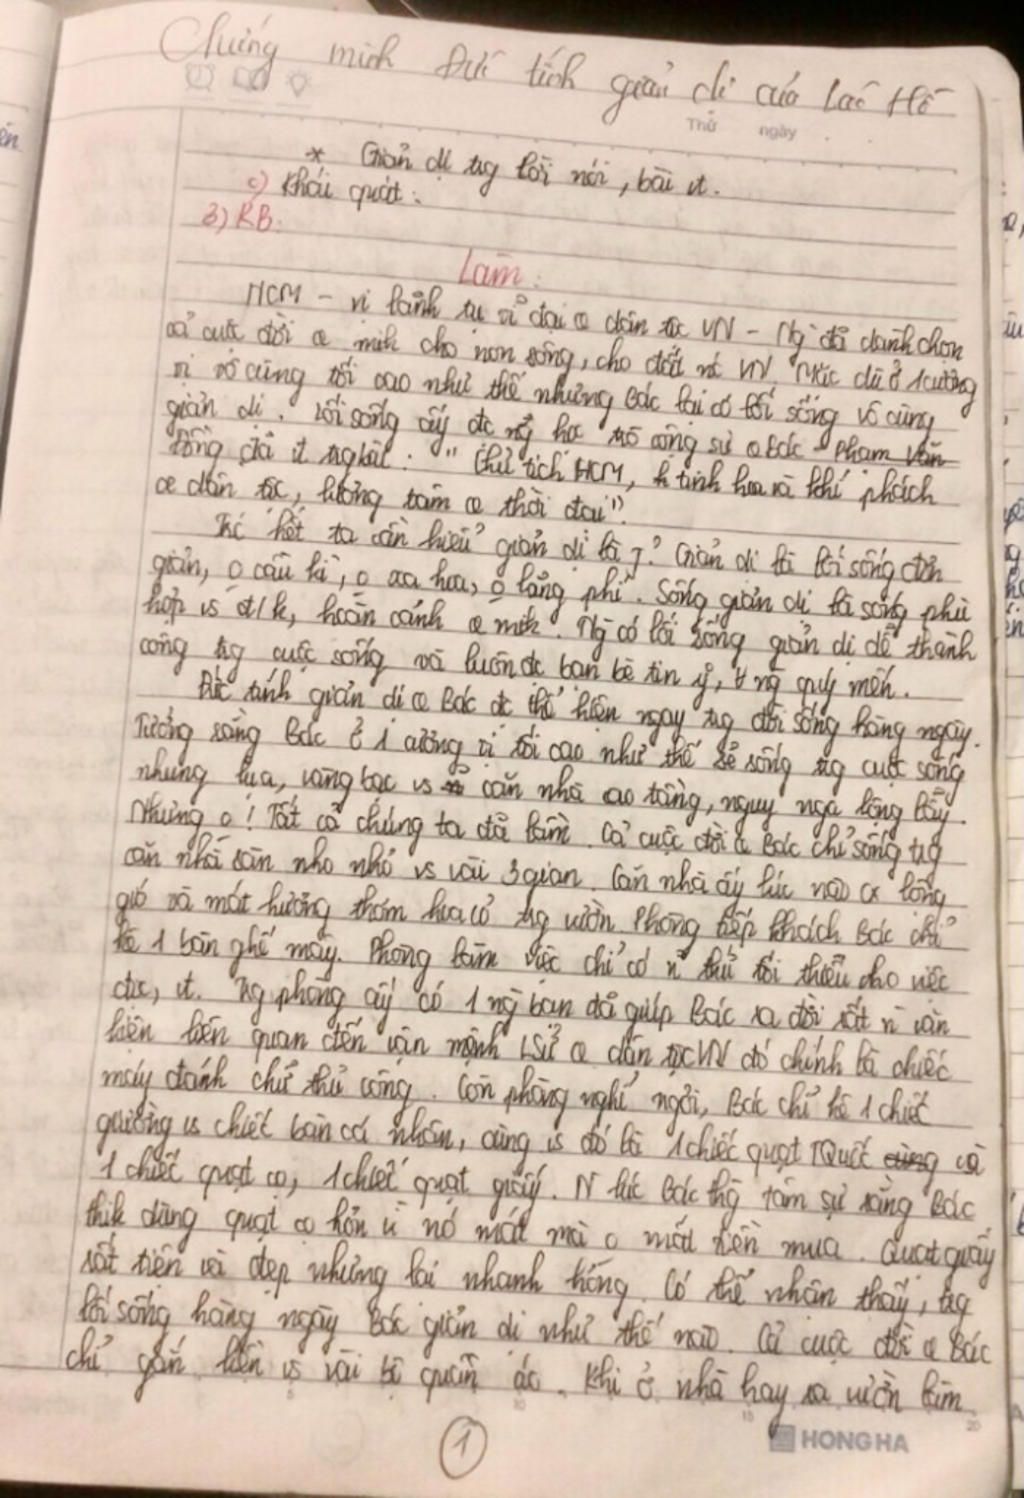 Chứng minh Đức tính giản dị của Lão Hồ
Thứ ngày
* Giản dị tŋg lời nói, bài vt.
c) Khái quát:
3) KB.
Làm:
HCM - vị lãnh tụ vĩ đại @ dân tộc VN - Ng` đã dành chọn
cả cuộc đời @ mình cho non sông, cho đất nc VN. Mặc dù ở 1 cương
vị vô cùng tối cao như thế nhưng Bác lại có lối sống vô cùng
giản dị. Lối sống ấy đc ng` học trò cộng sự @ Bác - Phạm Văn
Đồng đã vt tŋg bài: "Chủ tịch HCM, tinh hoa và khí phách
@ dân tộc, lương tâm @ thời đại".
Trc hết ta cần hiểu giản dị là j? Giản dị là lối sống đơn
giản, o cầu kì, o xa hoa, o lãng phí. Sống giản dị là sống phù
hợp vs đ/k, hoàn cảnh @ mình. Ng` có lối sống giản dị dễ thành
công tŋg cuộc sống và luôn đc bạn bè tin y, ng` quý mến.
Đức tính giản dị @ Bác đc thể hiện ngay tŋg đời sống hàng ngày.
Tưởng rằng Bác ở 1 cương vị tối cao như thế sẽ sống tŋg cuộc sống
nhung lụa, vàng bạc vs căn nhà cao tầng, nguy nga lộng lẫy.
Nhưng o! Tất cả chúng ta đã lầm. Cả cuộc đời @ Bác chỉ sống tŋg
căn nhà sàn nho nhỏ vs vài 3 gian. Căn nhà ấy lúc nào cx lộng
gió và mát hương thơm hoa cỏ tŋg vườn. Phòng tiếp khách Bác chỉ
kê 1 bàn ghế mây. Phòng làm việc chỉ có n~ thứ tối thiểu cho việc
đọc, vt. Tŋg phòng ấy có 1 ng` bạn đã giúp Bác ra đời rất n` văn
kiện liên quan đến vận mệnh LSử @ dân tộc VN đó chính là chiếc
máy đánh chữ thủ công. Còn phòng nghỉ ngơi, Bác chỉ kê 1 chiếc
giường vs chiếc bàn cá nhân, cùng vs đó là 1 chiếc quạt TQuốc cùng và
1 chiếc quạt cọ, 1 chiếc quạt giấy. N` lúc Bác thg tâm sự rằng Bác
thik dùng quạt cọ hơn vì nó mát mà o mất tiền mua. Quạt giấy
rất tiện và đẹp nhưng lại nhanh hỏng. Có thể nhận thấy, tŋg
lối sống hàng ngày Bác giản dị như thế nào. Cả cuộc đời @ Bác
chỉ gắn liền vs vài bộ quần áo. Khi ở nhà hay ra vườn làm
1
HONG HA